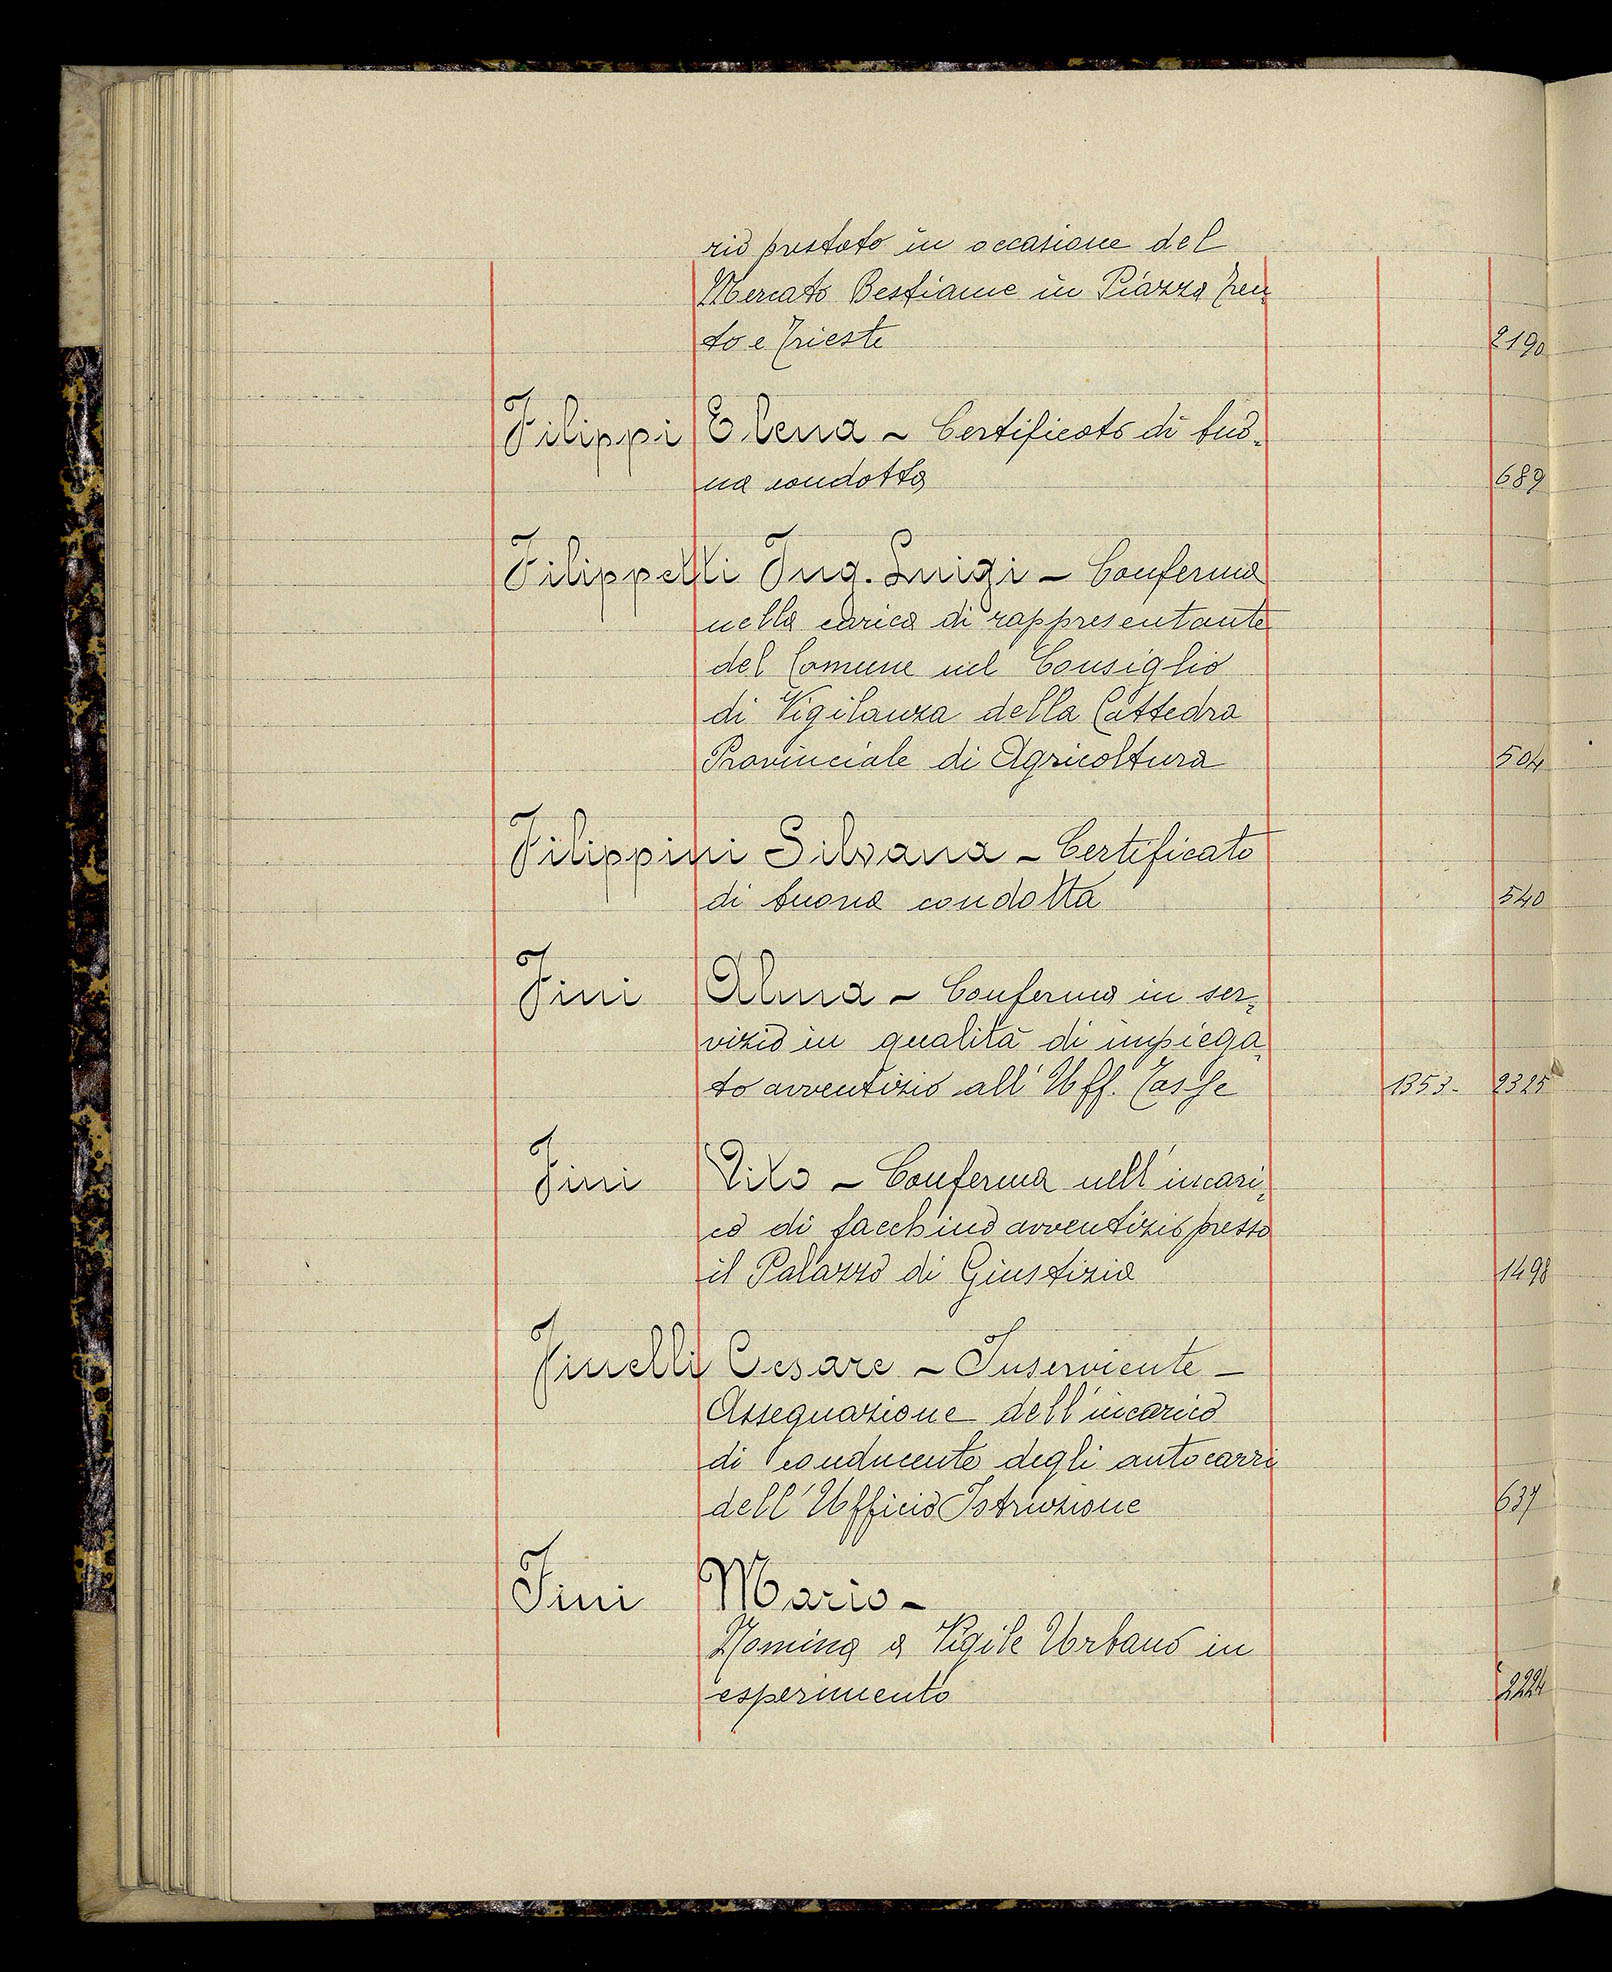 rio prestato in occasione del
Mercato Bestiame in Piazza Tren-
to e Trieste 2190
Filippi Elena - Certificato di buo-
na condotta 689
Filippelli Ing. Luigi - Conferma
nella carica di rappresentante
del Comune nel Consiglio
di Vigilanza della Cattedra
Provinciale di Agricoltura 504
Filippini Silvana - Certificato
di buona condotta 540
Fini Alma - Conferma in ser-
vizio in qualità di impiega-
to avventizio all'Uff. Tasse 1353- 2325
Fini Vito - Conferma nell'incari-
co di facchino avventizio presso
il Palazzo di Giustizia 1498
Finelli Cesare - Inserviente -
Assegnazione dell'incarico
di conducente degli autocarri
dell'Ufficio Istruzione 637
Fini Mario -
Nomina a Vigile Urbano in
esperimento 2224